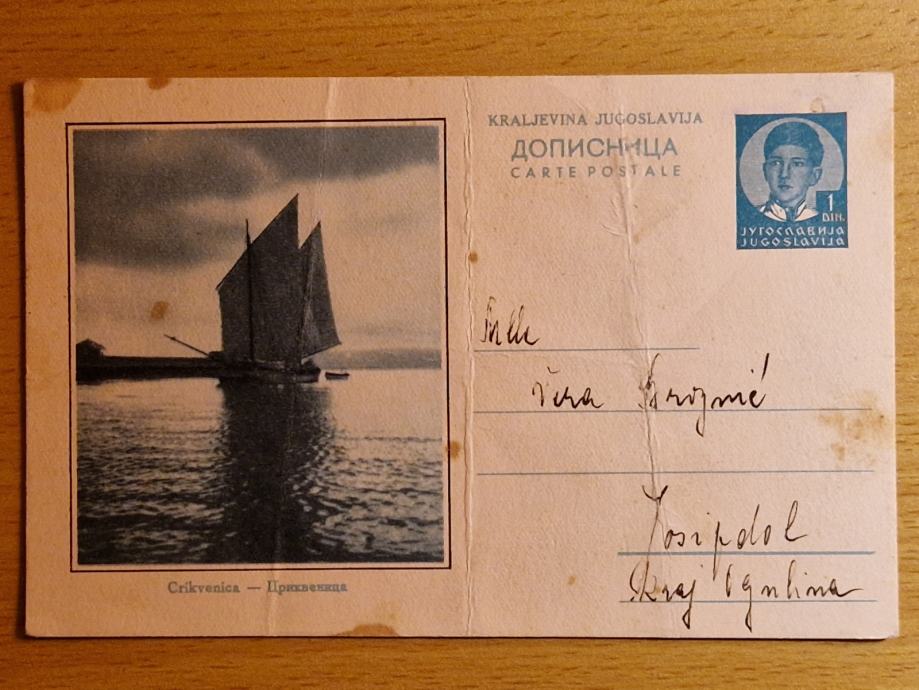 KRALJEVINA JUGOSLAVIJA
ДОПИСНИЦА
CARTE POSTALE
1
DIN.
ЈУГОСЛАВИЈА
JUGOSLAVIJA
Mlle
Vera
Josipdol
kraj Ogulina
Crikvenica — Цриквеница